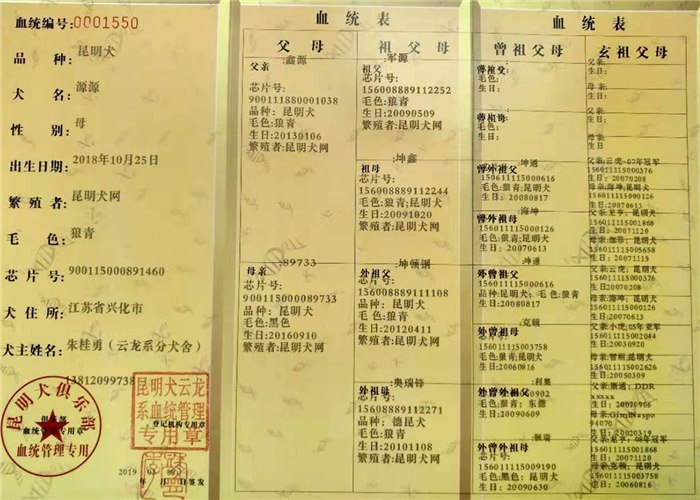 血统编号:0001550
品 种: 昆明犬
犬 名: 源源
性 别: 母
出生日期: 2018年10月25日
繁 殖 者: 昆明犬网
毛 色: 狼青
芯 片 号: 900115000891460
犬 住 所: 江苏省兴化市
犬主姓名: 朱桂勇（云龙系分犬舍）
13812099738
昆明犬俱乐部
血统管理专用
血统管理专用章
昆明犬云龙
系血统管理
专用章
登记机构专用章
2019
年 月 日签发
血 统 表
父 母
:鑫源
父亲
芯片号:
900111880001038
品种: 昆明犬
毛色:狼青
生日:20130106
繁殖者:昆明犬网
:89733
母亲
芯片号:
900115000089733
品种: 昆明犬
毛色:黑色
生日:20160910
繁殖者:昆明犬网
祖 父 母
:军源
祖父
芯片号:
156008889112252
毛色:狼青
生日:20090509
繁殖者:昆明犬网
:坤鑫
祖母
芯片号:
156008889112244
毛色:狼青
生日:20091020
繁殖者:昆明犬网
:坤顿钢
外祖父
芯片号:
156008889111108
品种: 昆明犬
毛色:狼青
生日:20120411
繁殖者:昆明犬网
:奥瑞锋
外祖母
芯片号:
156008889112271
品种: 德昆犬
毛色:狼青
生日:20101108
繁殖者:昆明犬网
血 统 表
曾 祖 父 母
曾祖父
毛色:
生日:
曾祖母
毛色:
生日:
:坤通
曾外祖父
150611115000616
毛色:狼青;昆明犬
生日: 20080817
:海坤
曾外祖母
156011115000611
毛色:狼青;昆明犬
生日: 20070613
:坤通
外曾祖父
156011115000616
品种:昆明犬; 毛色:狼青
生日: 20080817
:克顿
外曾祖母
156011115000508
毛色:狼青;昆明犬
生日:20051120
:利奥
曾外曾外祖父
毛色:狼青: 东德
生日:20090609
:佩瑞
曾外曾外祖母
156011115009190
毛色:黑色; 昆明犬
生日: 20090630
玄 祖 父 母
父亲:
生日:
母亲:
生日:
父亲:
生日:
母亲:
生日:
父亲:云虎-07年冠军
156011115000376
生日: 20070208
母亲:海坤;昆明犬
156011115000611
生日:20070613
父亲:龙亨: 昆明犬
156011115001868
生日: 20071120
156011115005658
生日:20071120
父亲:云虎: 昆明犬
156011115000376
生日:20070208
母亲:海坤; 昆明犬
生日:20070613
父亲:小虎:05年亚军
156011115002044
生日:20030920
156011115002626
生日:20050309
DDR
xxxxx
生日:20070906
94070
生日: 20020319
156011115000167
生日:20071120
母亲:克顿; 昆明犬
156011115000508
生日:20060816